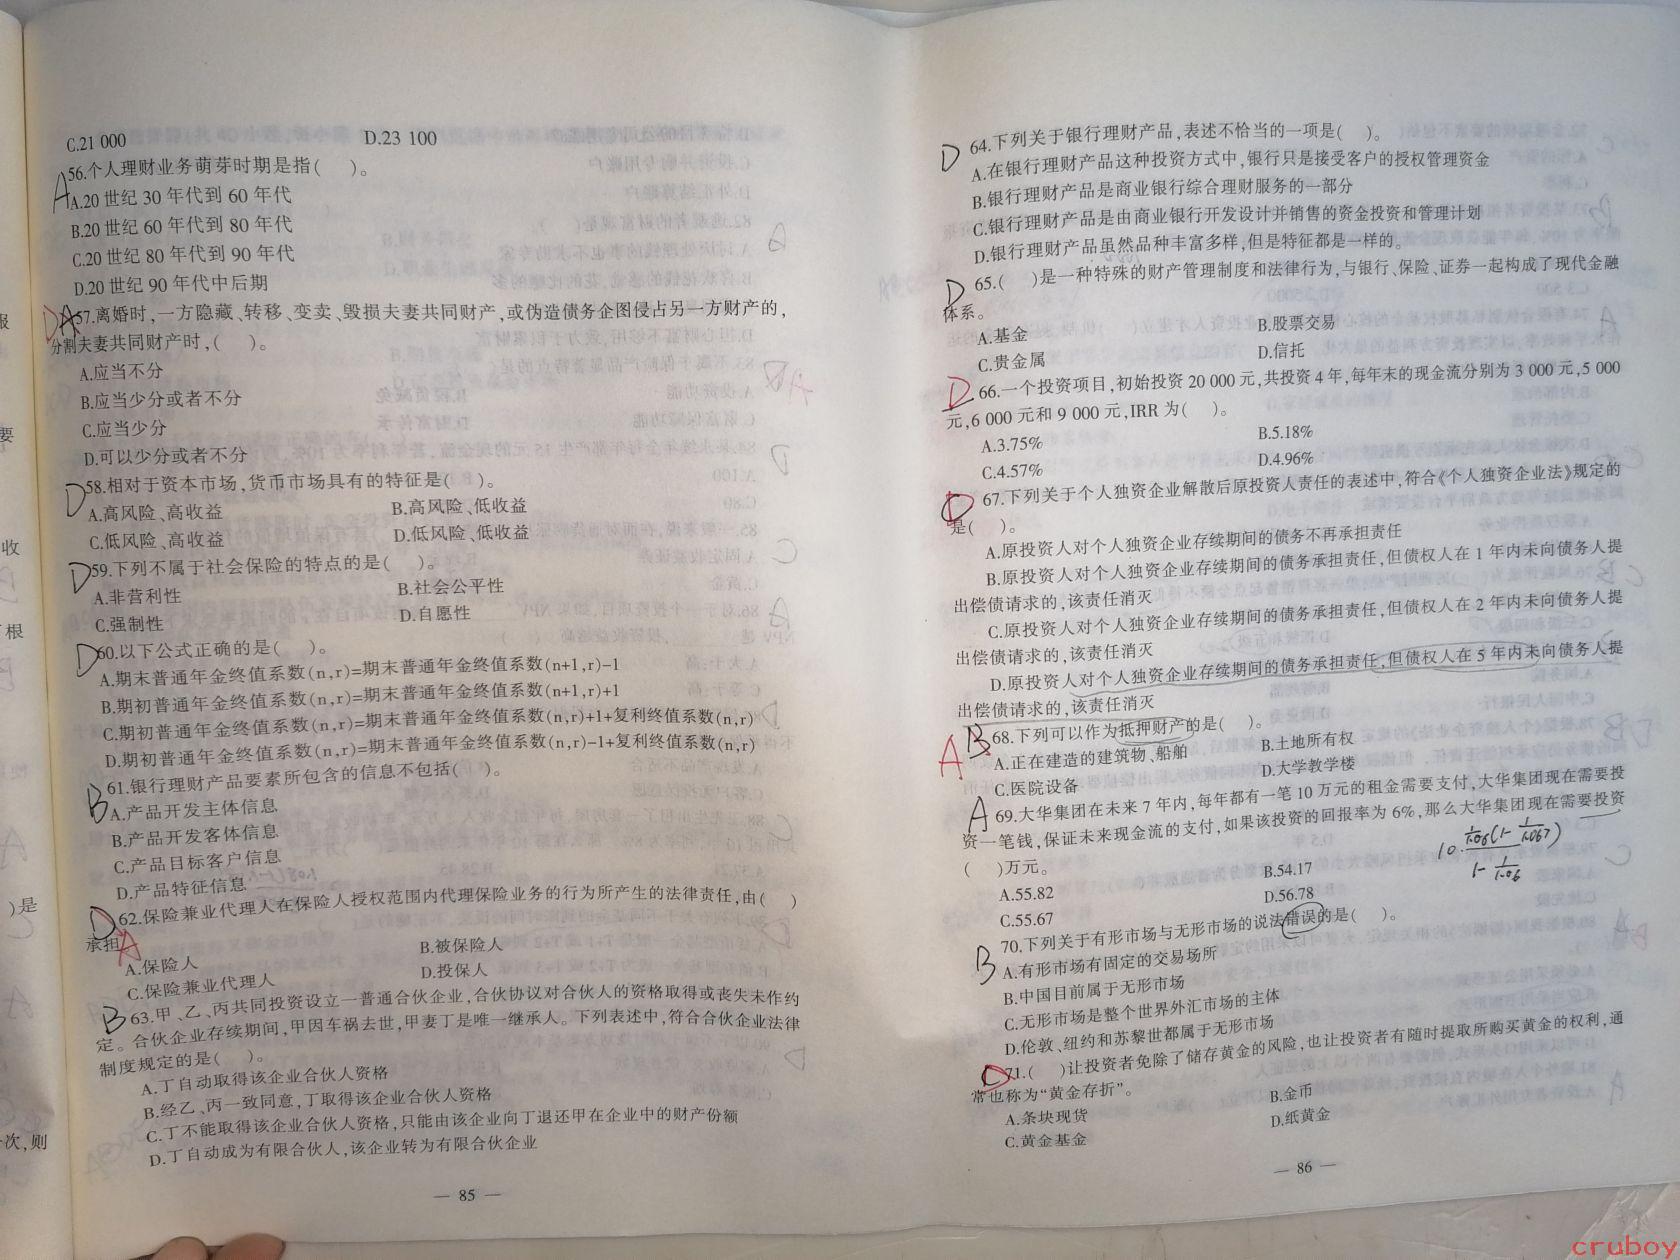 C.21 000 D.23 100
56.个人理财业务萌芽时期是指( )。
A
A.20 世纪 30 年代到 60 年代
B.20 世纪 60 年代到 80 年代
C.20 世纪 80 年代到 90 年代
D.20 世纪 90 年代中后期
DA
57.离婚时,一方隐藏、转移、变卖、毁损夫妻共同财产,或伪造债务企图侵占另一方财产的,
分割夫妻共同财产时,( )。
A.应当不分
B.应当少分或者不分
C.应当少分
D.可以少分或者不分
D
58.相对于资本市场,货币市场具有的特征是( )。
A.高风险、高收益 B.高风险、低收益
C.低风险、高收益 D.低风险、低收益
D
59.下列不属于社会保险的特点的是( )。
A.非营利性 B.社会公平性
C.强制性 D.自愿性
D
60.以下公式正确的是( )。
A.期末普通年金终值系数(n,r)=期末普通年金终值系数(n+1,r)-1
B.期初普通年金终值系数(n,r)=期末普通年金终值系数(n+1,r)+1
C.期初普通年金终值系数(n,r)=期末普通年金终值系数(n,r)+1+复利终值系数(n,r)
D.期初普通年金终值系数(n,r)=期末普通年金终值系数(n,r)-1+复利终值系数(n,r)
61.银行理财产品要素所包含的信息不包括( )。
B
A.产品开发主体信息
B.产品开发客体信息
C.产品目标客户信息
D.产品特征信息
D
62.保险兼业代理人在保险人授权范围内代理保险业务的行为所产生的法律责任,由( )
承担。
A
A.保险人 B.被保险人
C.保险兼业代理人 D.投保人
B
63.甲、乙、丙共同投资设立一普通合伙企业,合伙协议对合伙人的资格取得或丧失未作约
定。合伙企业存续期间,甲因车祸去世,甲妻丁是唯一继承人。下列表述中,符合合伙企业法律
制度规定的是( )。
A.丁自动取得该企业合伙人资格
B.经乙、丙一致同意,丁取得该企业合伙人资格
C.丁不能取得该企业合伙人资格,只能由该企业向丁退还甲在企业中的财产份额
D.丁自动成为有限合伙人,该企业转为有限合伙企业
— 85 —
D
64.下列关于银行理财产品,表述不恰当的一项是( )。
A.在银行理财产品这种投资方式中,银行只是接受客户的授权管理资金
B.银行理财产品是商业银行综合理财服务的一部分
C.银行理财产品是由商业银行开发设计并销售的资金投资和管理计划
D.银行理财产品虽然品种丰富多样,但是特征都是一样的。
D
65.( )是一种特殊的财产管理制度和法律行为,与银行、保险、证券一起构成了现代金融
体系。
A.基金 B.股票交易
C.贵金属 D.信托
D
66.一个投资项目,初始投资 20 000 元,共投资 4 年,每年末的现金流分别为 3 000 元,5 000
元,6 000 元和 9 000 元,IRR 为( )。
A.3.75% B.5.18%
C.4.57% D.4.96%
D
67.下列关于个人独资企业解散后原投资人责任的表述中,符合《个人独资企业法》规定的
是( )。
A.原投资人对个人独资企业存续期间的债务不再承担责任
B.原投资人对个人独资企业存续期间的债务承担责任,但债权人在 1 年内未向债务人提
出偿债请求的,该责任消灭
C.原投资人对个人独资企业存续期间的债务承担责任,但债权人在 2 年内未向债务人提
出偿债请求的,该责任消灭
D.原投资人对个人独资企业存续期间的债务承担责任,但债权人在 5 年内未向债务人提
出偿债请求的,该责任消灭
A B
68.下列可以作为抵押财产的是( )。
A.正在建造的建筑物、船舶 B.土地所有权
C.医院设备 D.大学教学楼
A
69.大华集团在未来 7 年内,每年都有一笔 10 万元的租金需要支付,大华集团现在需要投
资一笔钱,保证未来现金流的支付,如果该投资的回报率为 6%,那么大华集团现在需要投资
( )万元。
A.55.82 B.54.17
C.55.67 D.56.78
70.下列关于有形市场与无形市场的说法错误的是( )。
B
A.有形市场有固定的交易场所
B.中国目前属于无形市场
C.无形市场是整个世界外汇市场的主体
D.伦敦、纽约和苏黎世都属于无形市场
D
71.( )让投资者免除了储存黄金的风险,也让投资者有随时提取所购买黄金的权利,通
常也称为“黄金存折”。
A.条块现货 B.金币
C.黄金基金 D.纸黄金
— 86 —
要
收
根
)是
次,则
cruboy